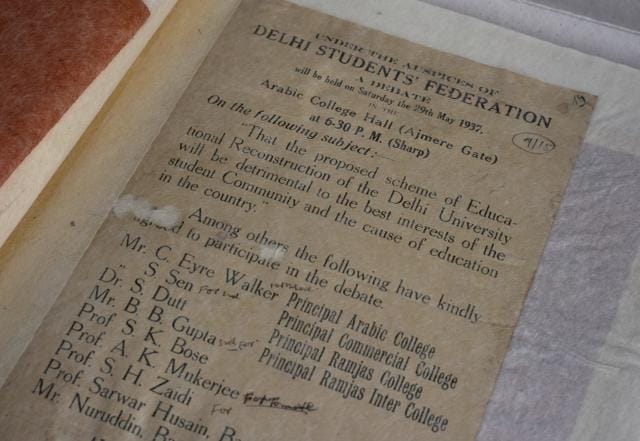 UNDER THE AUSPICES OF
DELHI STUDENTS' FEDERATION
A DEBATE
will be held on Saturday the 29th May 1937.
IN THE
Arabic College Hall (Ajmere Gate)
at 6-30 P. M. (Sharp)
On the following subject:—
"That the proposed scheme of Educa-
tional Reconstruction of the Delhi University
will be detrimental to the best interests of the
student Community and the cause of education
in the country."
Among others the following have kindly
agreed to participate in the debate.
Mr. C. Eyre Walker Principal Arabic College
" S. Sen Principal Commercial College
Dr. S. Dutt Principal Ramjas College
Mr. B. B. Gupta Principal Ramjas Inter College
Prof. S. K. Bose
Prof. A. K. Mukerjee
Prof. S. H. Zaidi For
Prof. Sarwar Husain,
Mr. Nuruddin,